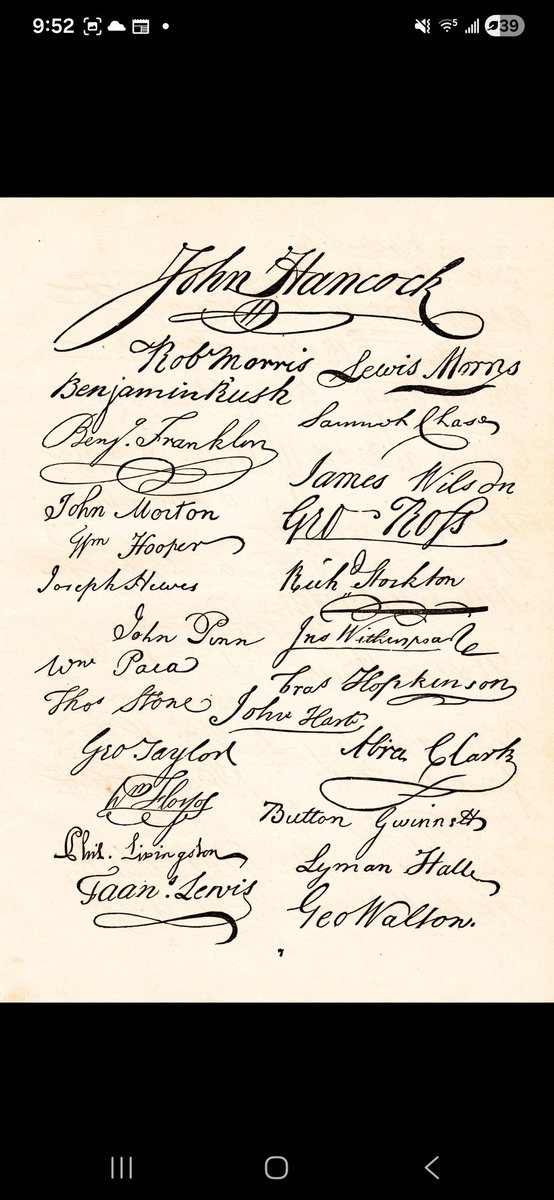 9:52
39
John Hancock
Robt Morris
Lewis Morris
Benjamin Rush
Samuel Chase
Benj. Franklin
James Wilson
John Morton
Geo Ross
Wm Hooper
Joseph Hewes
Rich Stockton
John Penn
Jno Witherspoon
Wm Paca
Fras Hopkinson
Thos Stone
John Hart
Geo Taylor
Abra Clark
Wm Floyd
Button Gwinnett
Phil. Livingston
Lyman Hall
Frans. Lewis
Geo Walton.
7